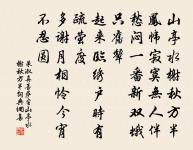 山亭水榭秋方半
鳳幃寂寞無人伴
愁悶一番新雙蛾
只舊顰
起來臨繡戶時有
疏螢度
多謝月相憐今宵
不忍圓
朱淑真菩薩蠻山亭水
榭秋方半詞典網集